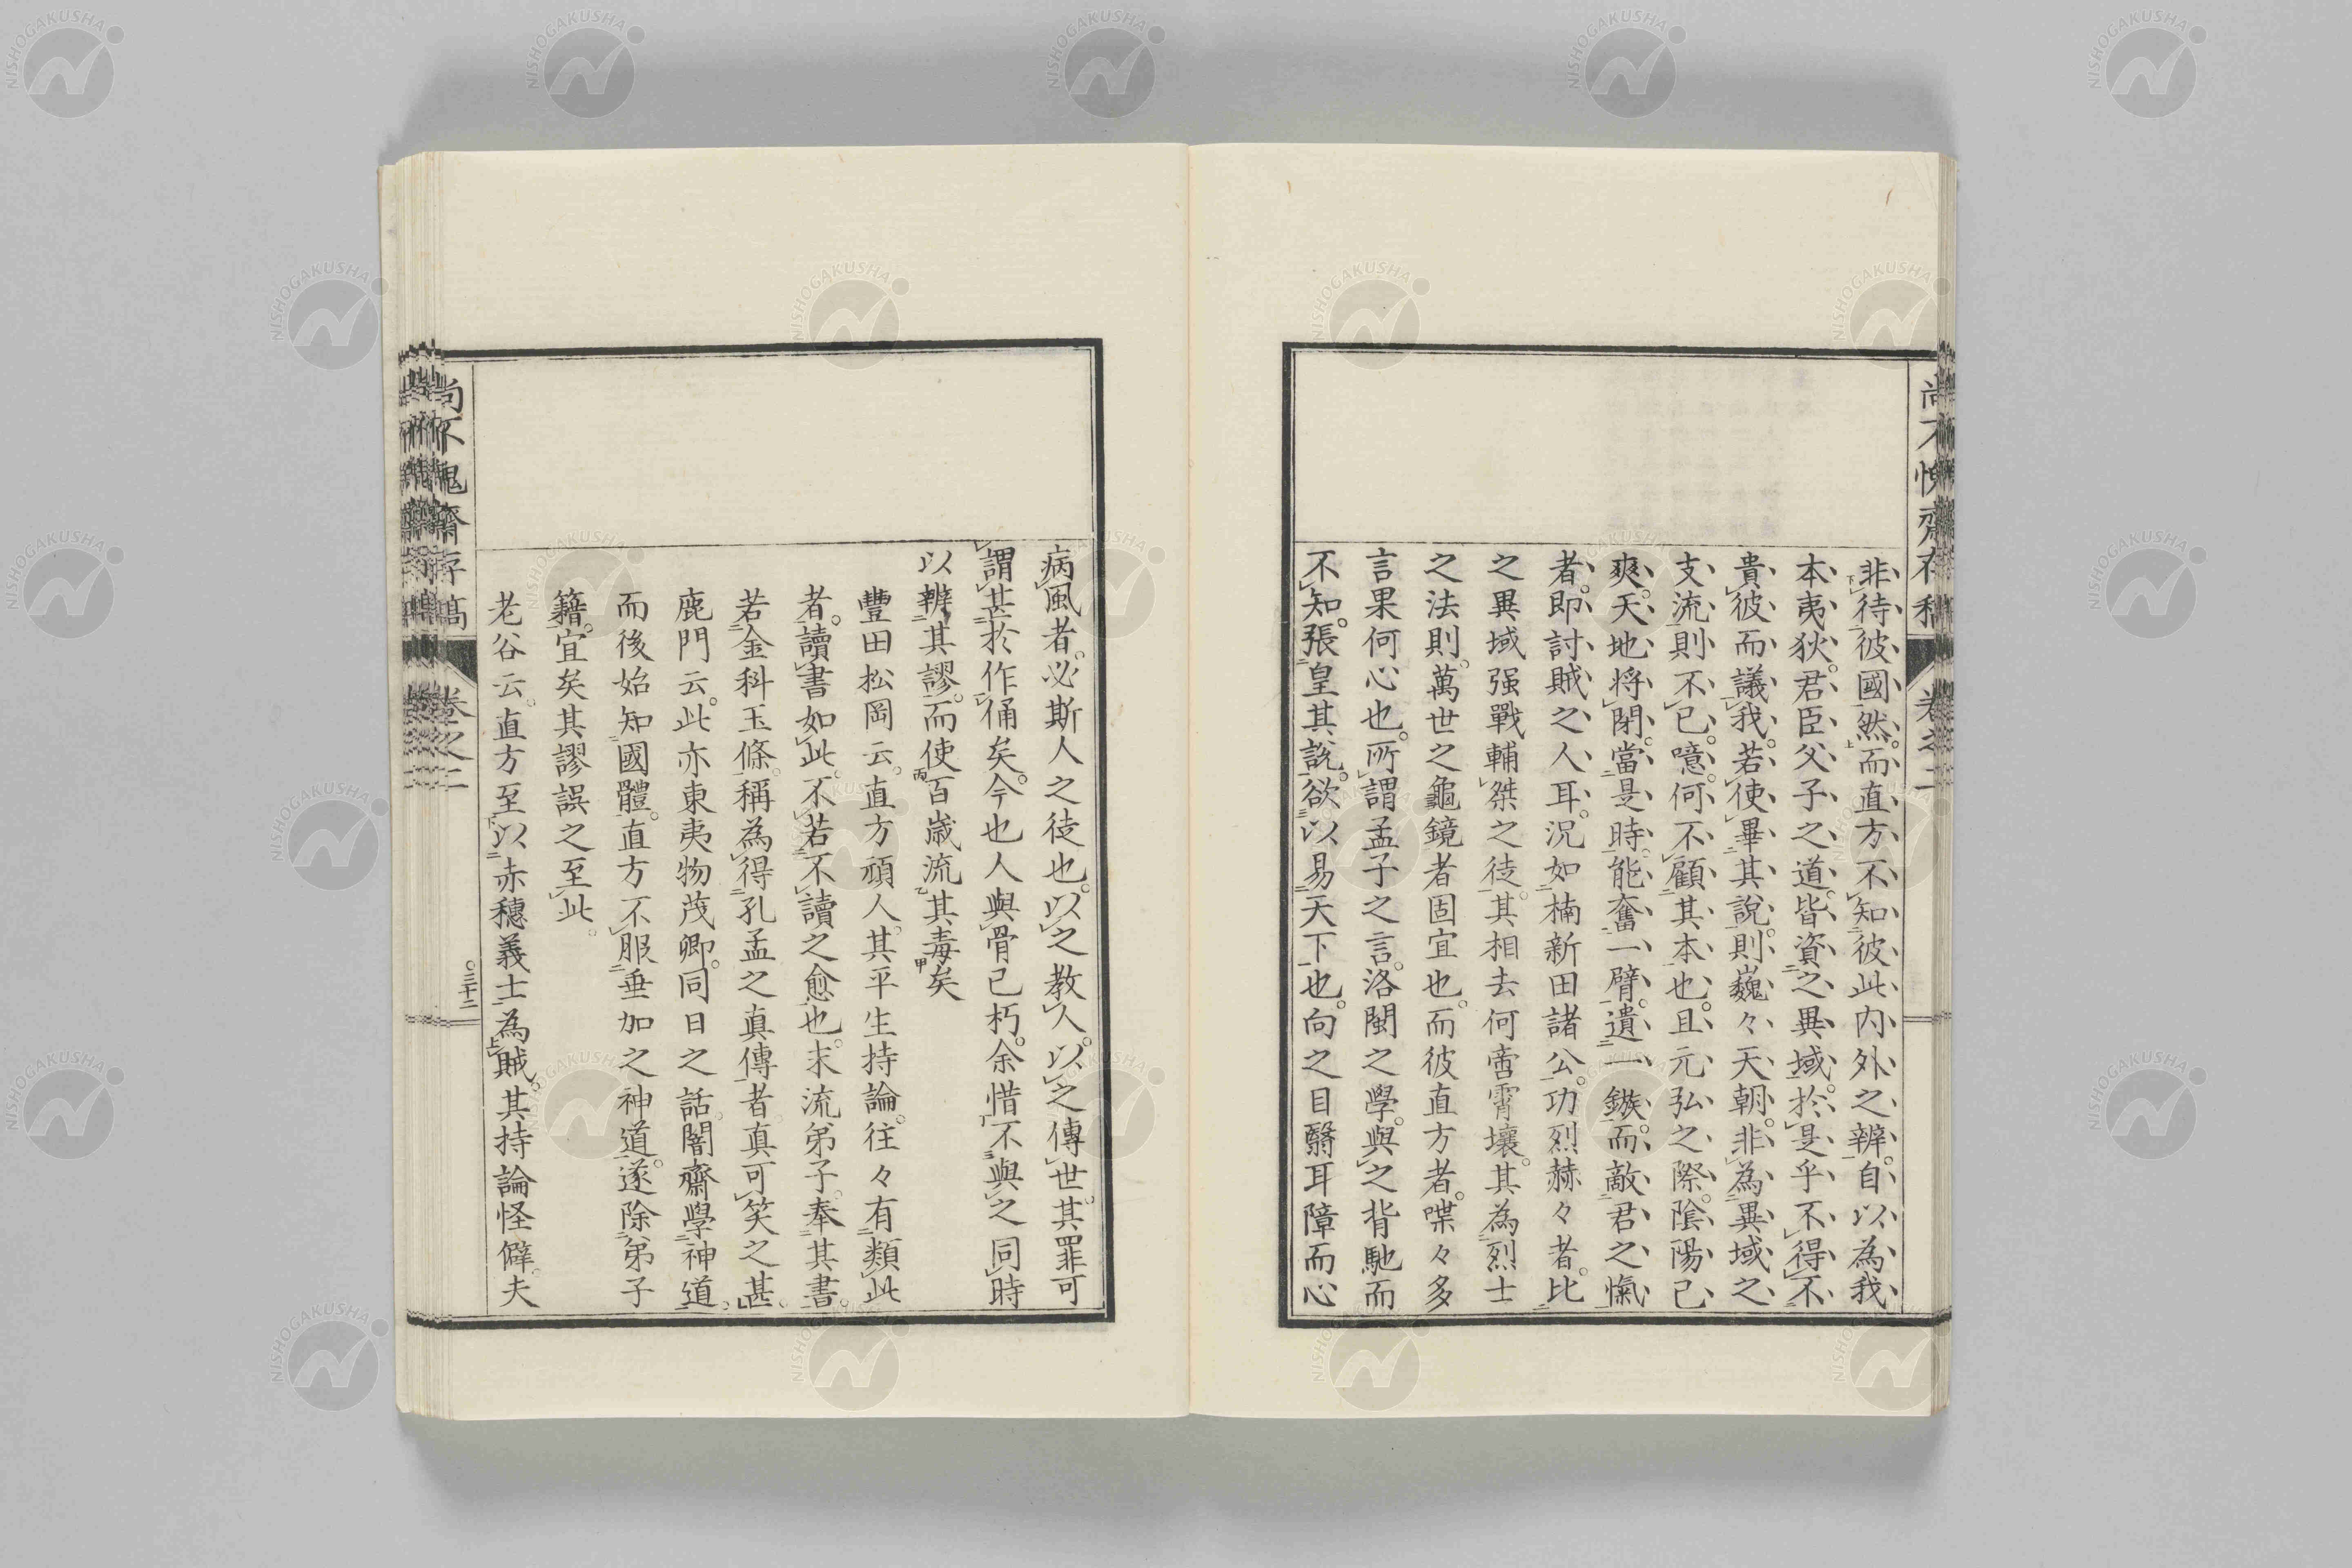 尚不愧齋存稿 卷之二
非待彼國然而直方不知彼此内外之辨自以為我
本夷狄君臣父子之道皆資之異域於是乎不得不
貴彼而議我若使畢其說則巍々天朝非為異域之
支流則不已噫何不顧其本也且元弘之際陰陽已
爽天地將閉當是時能奮一臂遺一鏃而敵君之愾
者即討賊之人耳況如楠新田諸公功烈赫々者比
之異域强戰輔桀之徒其相去何啻霄壤其為烈士
之法則萬世之龜鏡者固宜也而彼直方者喋々多
言果何心也所謂孟子之言洛閩之學與之背馳而
不知張皇其說欲以易天下也向之目翳耳障而心
病風者必斯人之徒也以之教人以之傳世其罪可
謂甚於作俑矣今也人與骨已朽余惜不與之同時
以辨其謬而使百歲流其毒矣
豐田松岡云直方頑人其平生持論往々有類此
者讀書如此不若不讀之愈也末流弟子奉其書
若金科玉條稱為得孔孟之真傳者真可笑之甚
鹿門云此亦東夷物茂卿同日之話闇齋學神道
而後始知國體直方不服垂加之神道遂除弟子
籍宜矣其謬誤之至此
老谷云直方至以赤穗義士為賊其持論怪僻夫
尚不愧齋存稿 卷之二 三十二
NISHOGAKUSHA